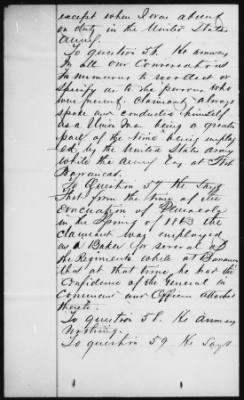 except when I was absent
on duty in the United States
Army.
To question 56. He answers
In all our Conversations
to numerous to recollect or
specify as to the persons who
were present. claimant always
spoke and conducted himself
as a Union Man being a greater
part of the time being employ
ed by the United States Army
while the army lay at Fort
Barrancas.
To Question 57 He Says
That from the time of the
Evacuation of Pensacola
in the Spring of 1863 the
claimant was employed
as a Baker for several of
the Regiments while at Barrancas
that at that time he had the
Confidence of the General in
Command and Officers attached
thereto.
To question 58. He Answers
Nothing.
To question 59 He Says